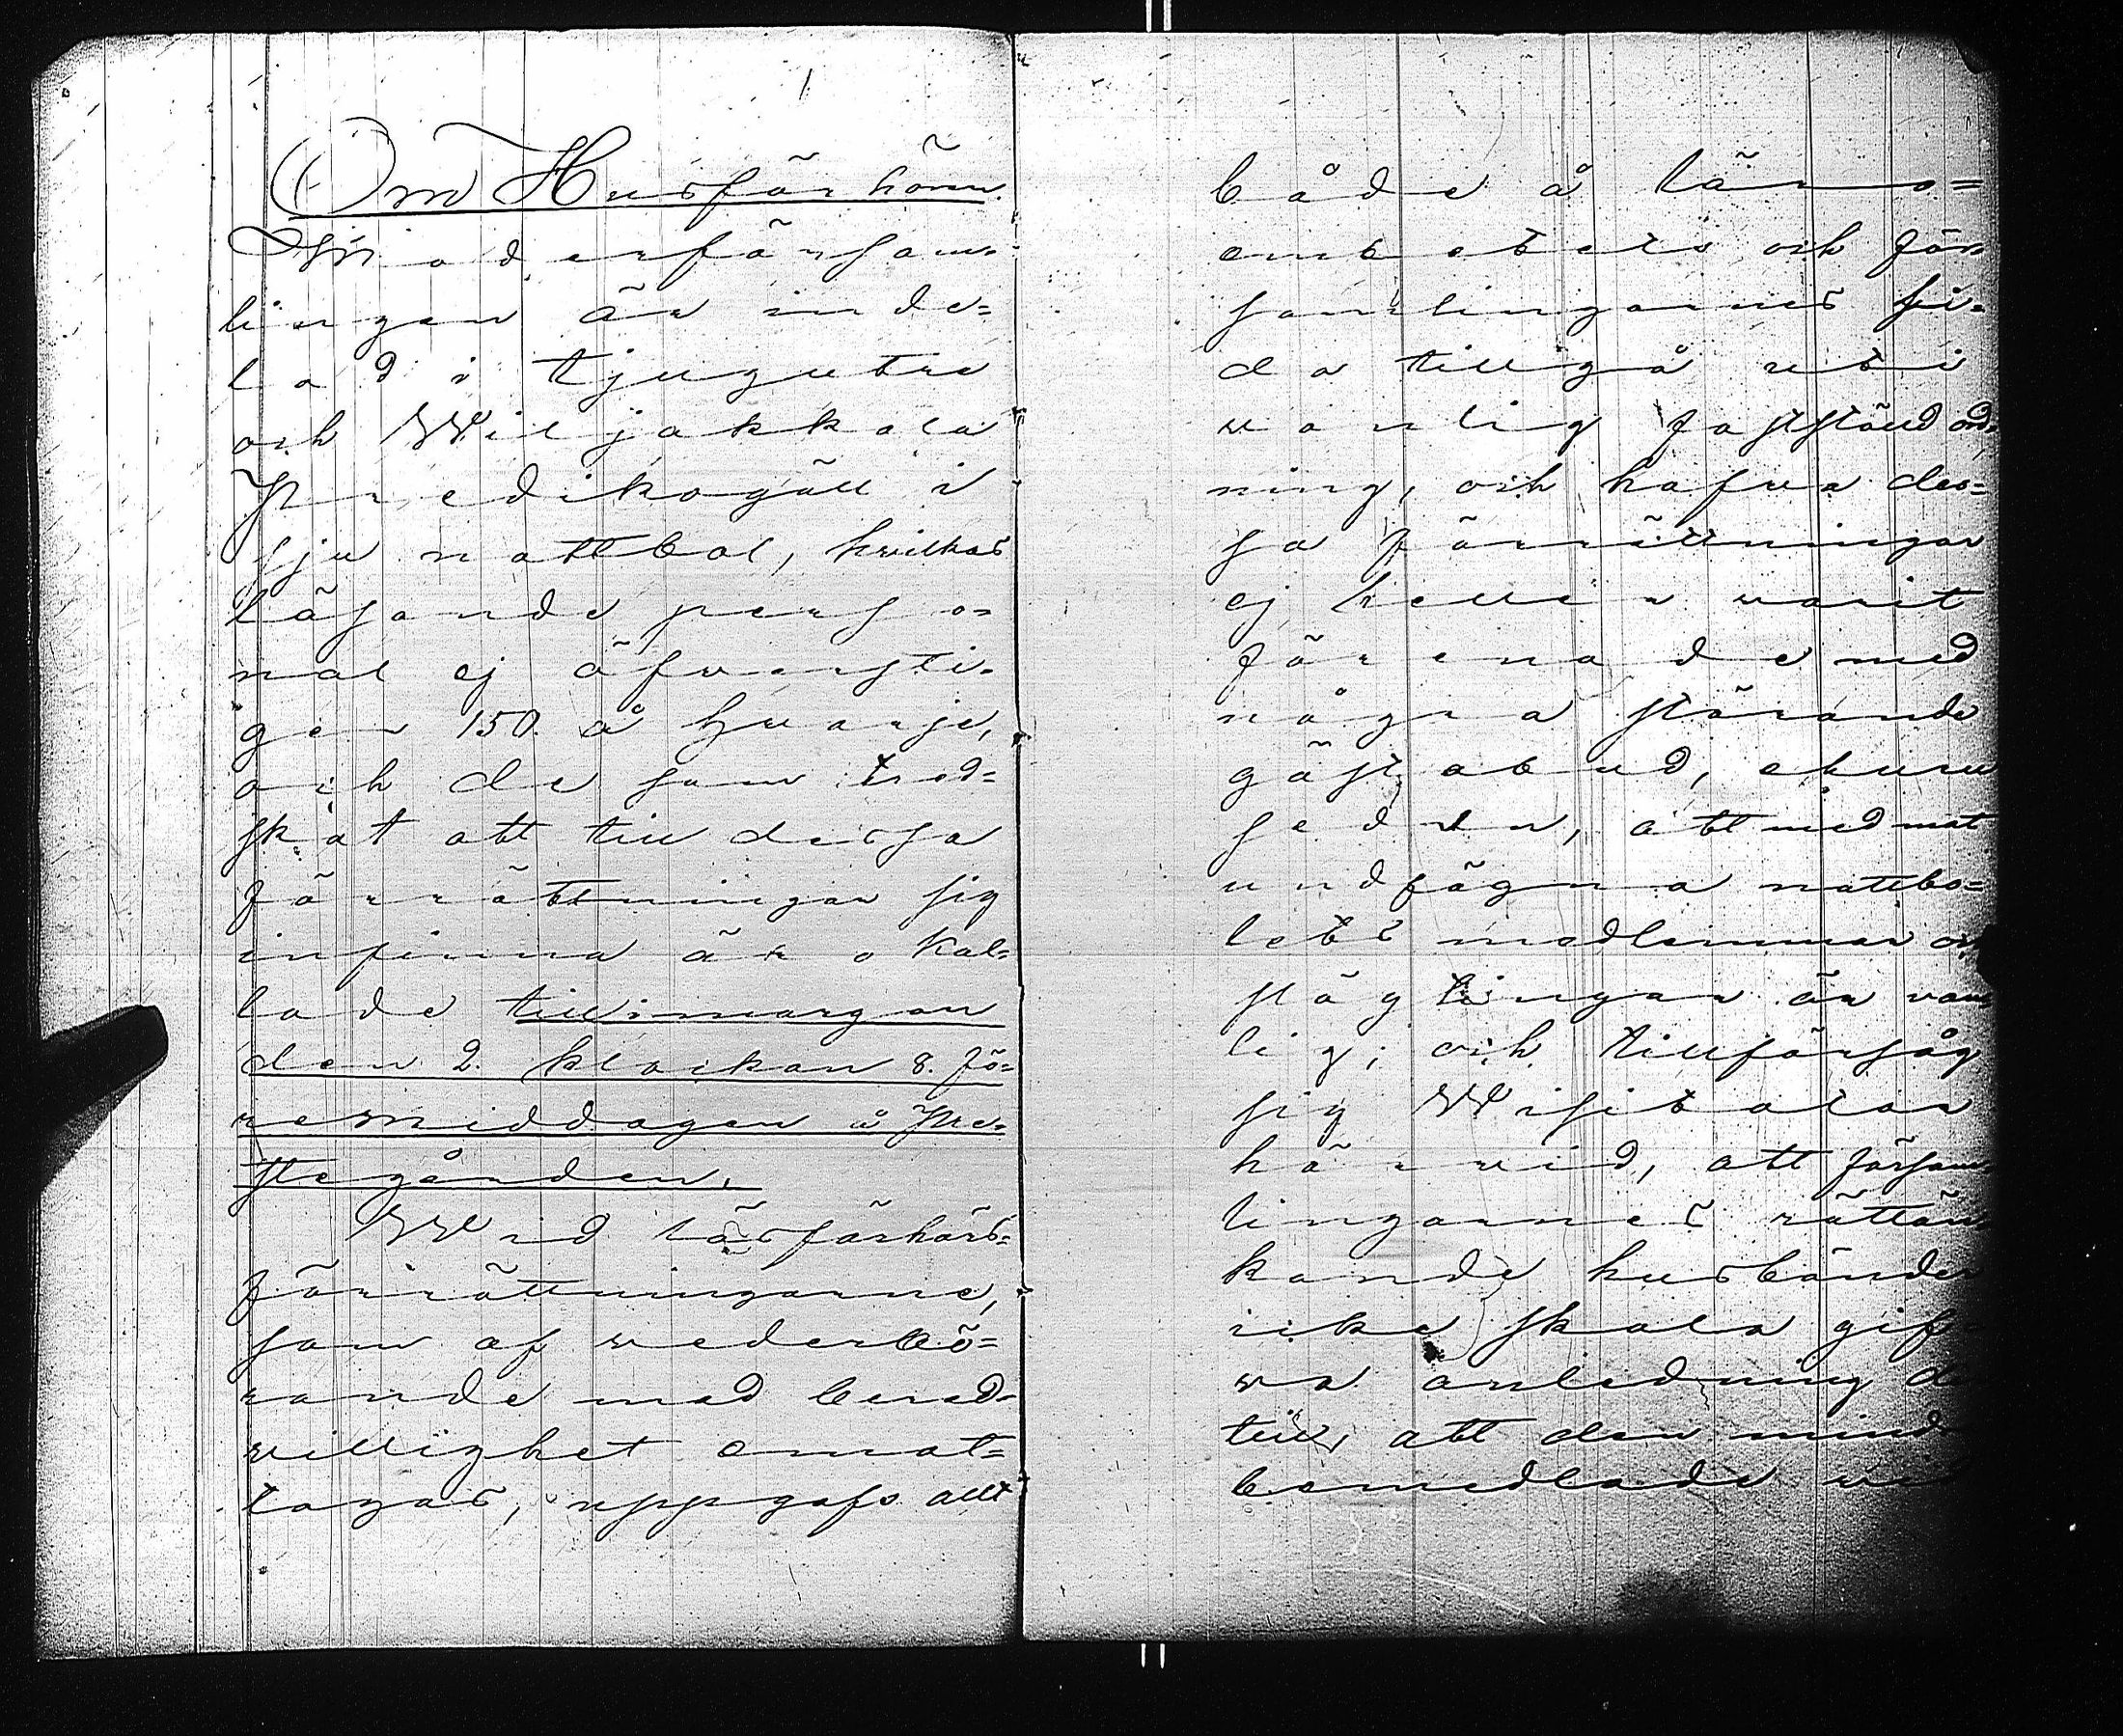 Om Husförhören.
Moderförsam=
lingen är inde=
lad i tjugutre
och Wiljakkala
Predikogäll i
sju nattbol, hvilkas
läsande perso=
nal ej öfversti=
ger 150. å hvarje,
och de som tred=
skat att till dessa
förrättningar sig
infinna äro kal=
lade till i morgon
den 2. klockan 8. fö=
remiddagen å Pre=
stegården.
Wid läsförhörs=
förrättningarne,
som af wederbö=
rande med bered=
villighet emot=
tagas, uppgafs allt
både å läro=
embetets och för
samlingarnes si=
da tillgå uti
vanlig fastställd ord=
ning, och hafva des=
sa förrättningar
ej heller warit
förenade med
några störande
gästabud, ehuru
seden, att med mat
undfägna nattbo=
lets medlemmar och
slägtingar är van
lig; och tillförsåg
sig Wisitator
härvid, att försam
lingarnes rättän
kande husbönder
icke skola gif
va anledning der
till, att den mind
bemedlade